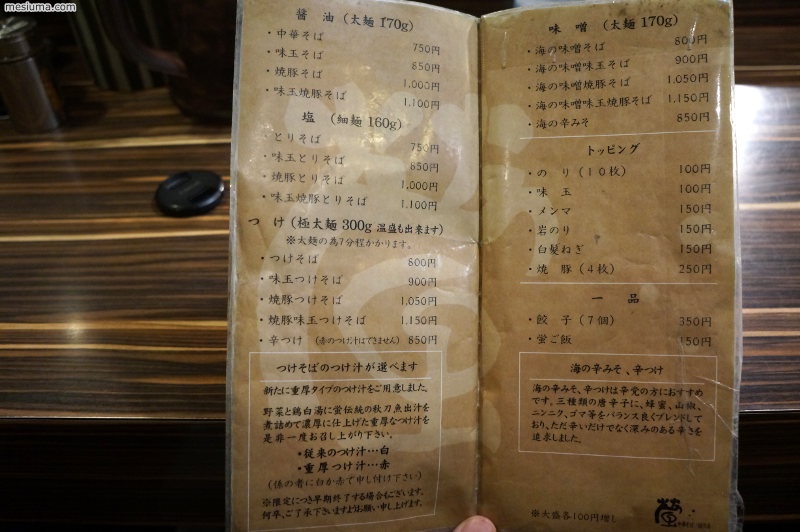 mesiuma.com
醤 油 (太麺 170g)
・中華そば 750円
・味玉そば 850円
・焼豚そば 1,000円
・味玉焼豚そば 1,100円
塩 (細麺 160g)
とりそば 750円
・味玉とりそば 850円
・焼豚とりそば 1,000円
・味玉焼豚とりそば 1,100円
つ け (極太麺 300g 温盛も出来ます)
※太麺の為7分程かかります。
・つけそば 800円
・味玉つけそば 900円
・焼豚つけそば 1,050円
・焼豚味玉つけそば 1,150円
・辛つけ (赤のつけ汁はできません) 850円
つけそばのつけ汁が選べます
新たに重厚タイプのつけ汁をご用意しました。
野菜と鶏白湯に蛍伝統の秋刀魚出汁を
煮詰めて濃厚に仕上げた重厚なつけ汁を
是非一度お召し上がり下さい。
・従来のつけ汁…白
・重厚つけ汁…赤
(係の者に白か赤で申し付け下さい)
※限定につき早期終了する場合もございます。
何卒、ご了承下さいますようお願い申し上げます。
味 噌 (太麺 170g)
・海の味噌そば 800円
・海の味噌味玉そば 900円
・海の味噌焼豚そば 1,050円
・海の味噌味玉焼豚そば 1,150円
・海の辛みそ 850円
トッピング
・の り (10枚) 100円
・味 玉 100円
・メンマ 150円
・岩のり 150円
・白髪ねぎ 150円
・焼 豚 (4枚) 250円
一 品
・餃 子 (7個) 350円
・蛍ご飯 150円
海の辛みそ、辛つけ
海の辛みそ、辛つけは辛党の方におすすめ
です。三種類の唐辛子に、蜂蜜、山椒、
ニンニク、ゴマ等をバランス良くブレンドして
おり、ただ辛いだけでなく深みのある辛さを
追求しました。
※大盛各100円増し